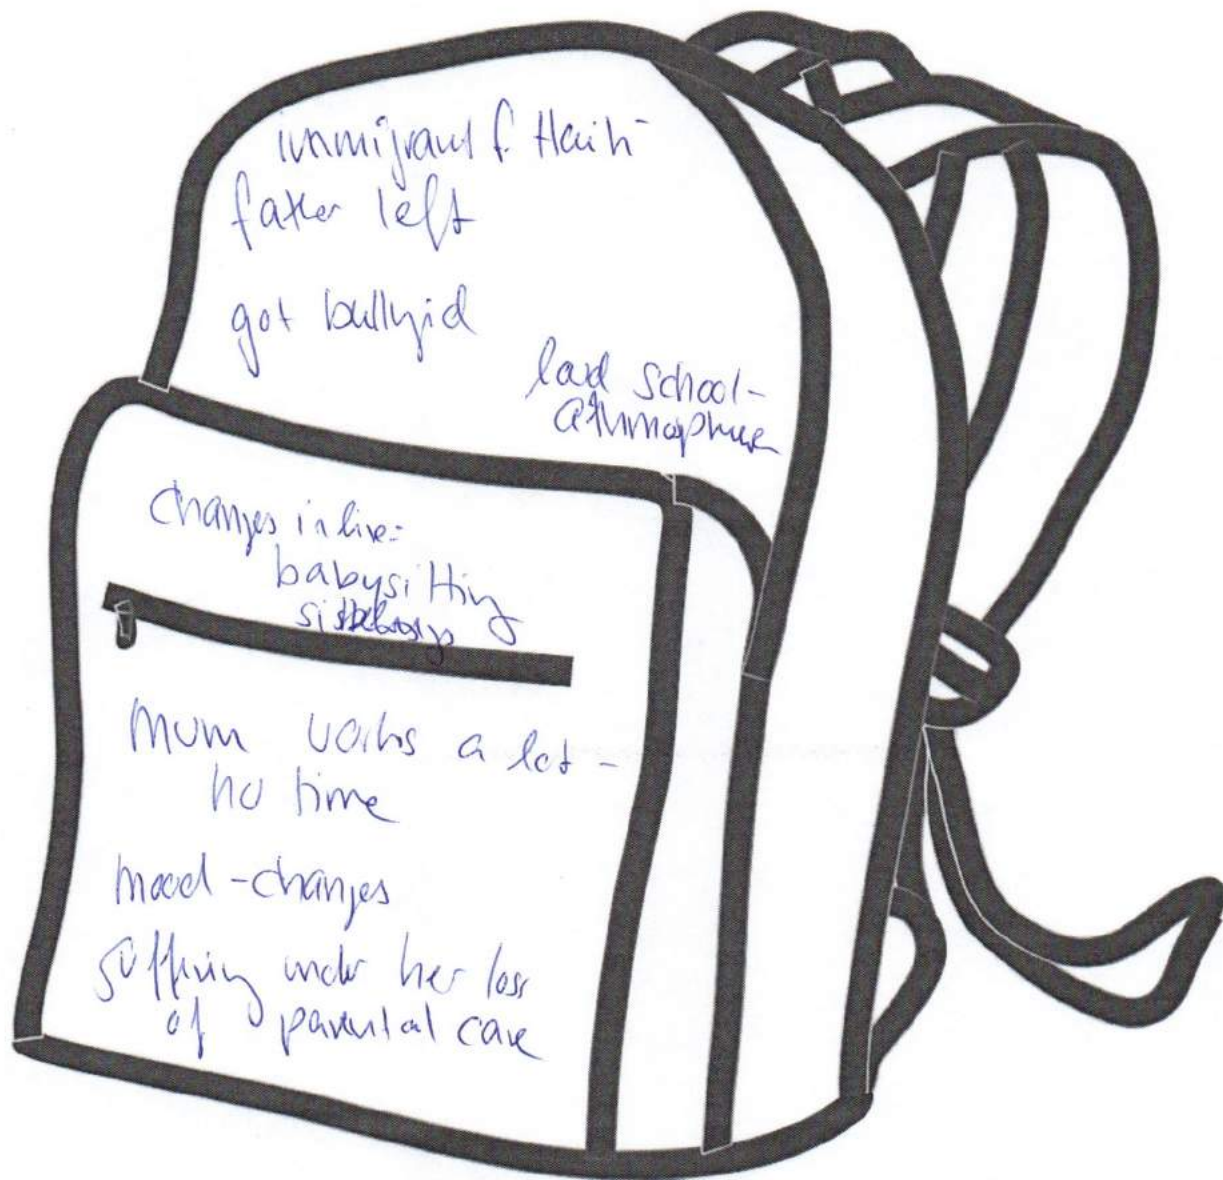 immigrant f. Haiti
father left
got bullyid
bad school-
athmosphere
Changes in live:
babysitting
mum works a lot -
no time
mood - changes
suffering under her loss
of parental care